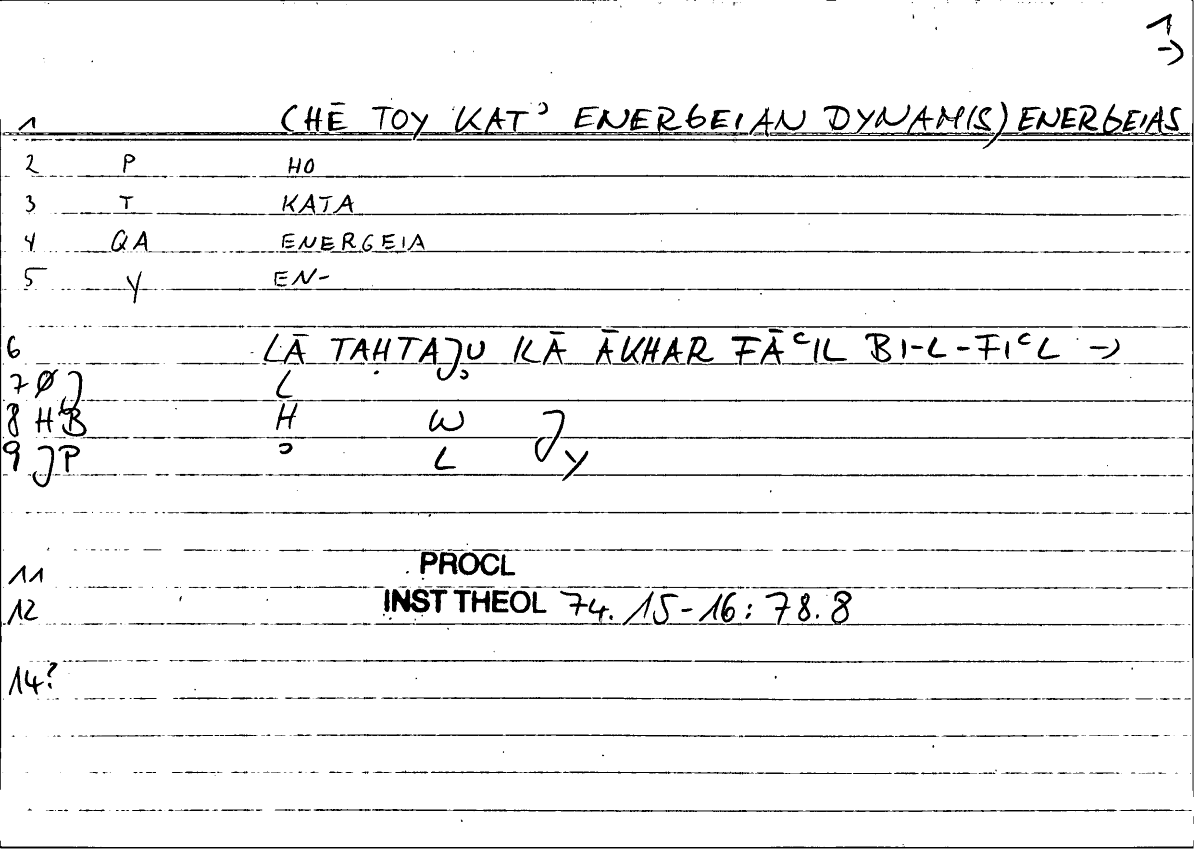 1
->
1 (HĒ TOY KAT' ENERGEIAN DYNAMIS) ENERGEIAS
2 P HO
3 T KATA
4 QA ENERGEIA
5 Y EN-
6 LĀ TAḤTAJU ILĀ ĀKHAR FĀʿIL BI-L-FIʿL ->
7 ØJ L
8 HB H W J
9 JP ʾ L Y
11 PROCL
12 INST THEOL 74.15-16: 78.8
14?